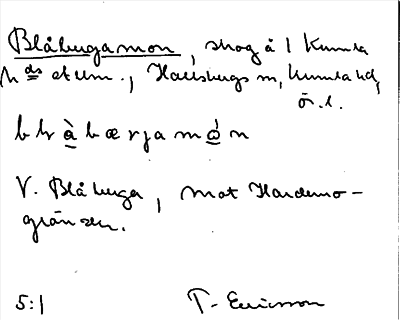 Blåbergamon, skog å 1 Kumla
h ds et um., Hallsbergs m, Kumla hd,
Ö. l.
b l å b æ r j a m ó n
V. Blåberga, mot Hardemo-
gränsen.
5:1 T. Ericsson